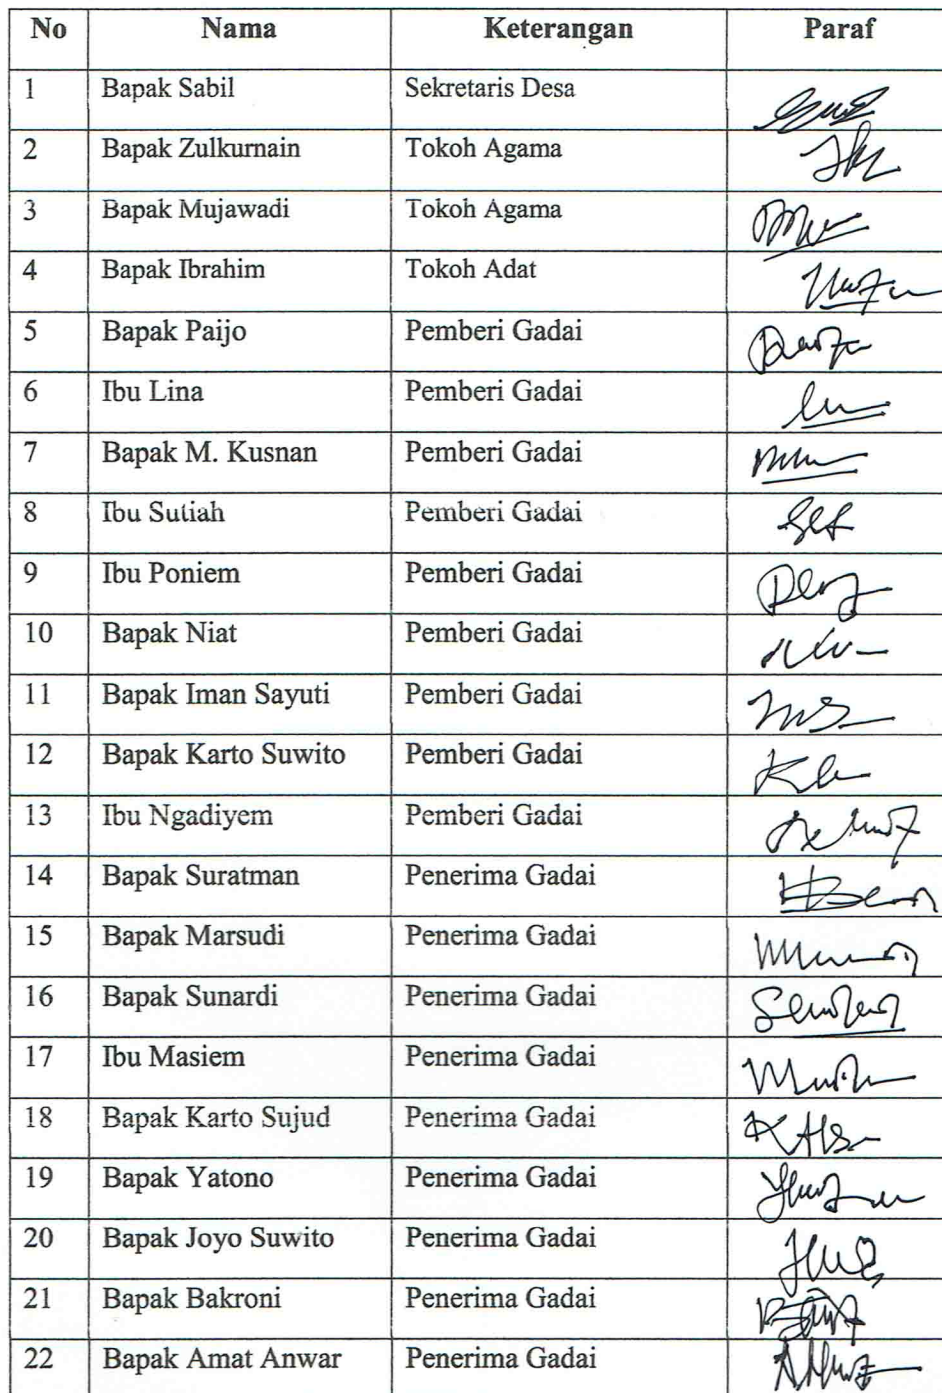 No Nama Keterangan Paraf
1 Bapak Sabil Sekretaris Desa
2 Bapak Zulkurnain Tokoh Agama
3 Bapak Mujawadi Tokoh Agama
4 Bapak Ibrahim Tokoh Adat
5 Bapak Paijo Pemberi Gadai
6 Ibu Lina Pemberi Gadai
7 Bapak M. Kusnan Pemberi Gadai
8 Ibu Sutiah Pemberi Gadai
9 Ibu Poniem Pemberi Gadai
10 Bapak Niat Pemberi Gadai
11 Bapak Iman Sayuti Pemberi Gadai
12 Bapak Karto Suwito Pemberi Gadai
13 Ibu Ngadiyem Pemberi Gadai
14 Bapak Suratman Penerima Gadai
15 Bapak Marsudi Penerima Gadai
16 Bapak Sunardi Penerima Gadai
17 Ibu Masiem Penerima Gadai
18 Bapak Karto Sujud Penerima Gadai
19 Bapak Yatono Penerima Gadai
20 Bapak Joyo Suwito Penerima Gadai
21 Bapak Bakroni Penerima Gadai
22 Bapak Amat Anwar Penerima Gadai